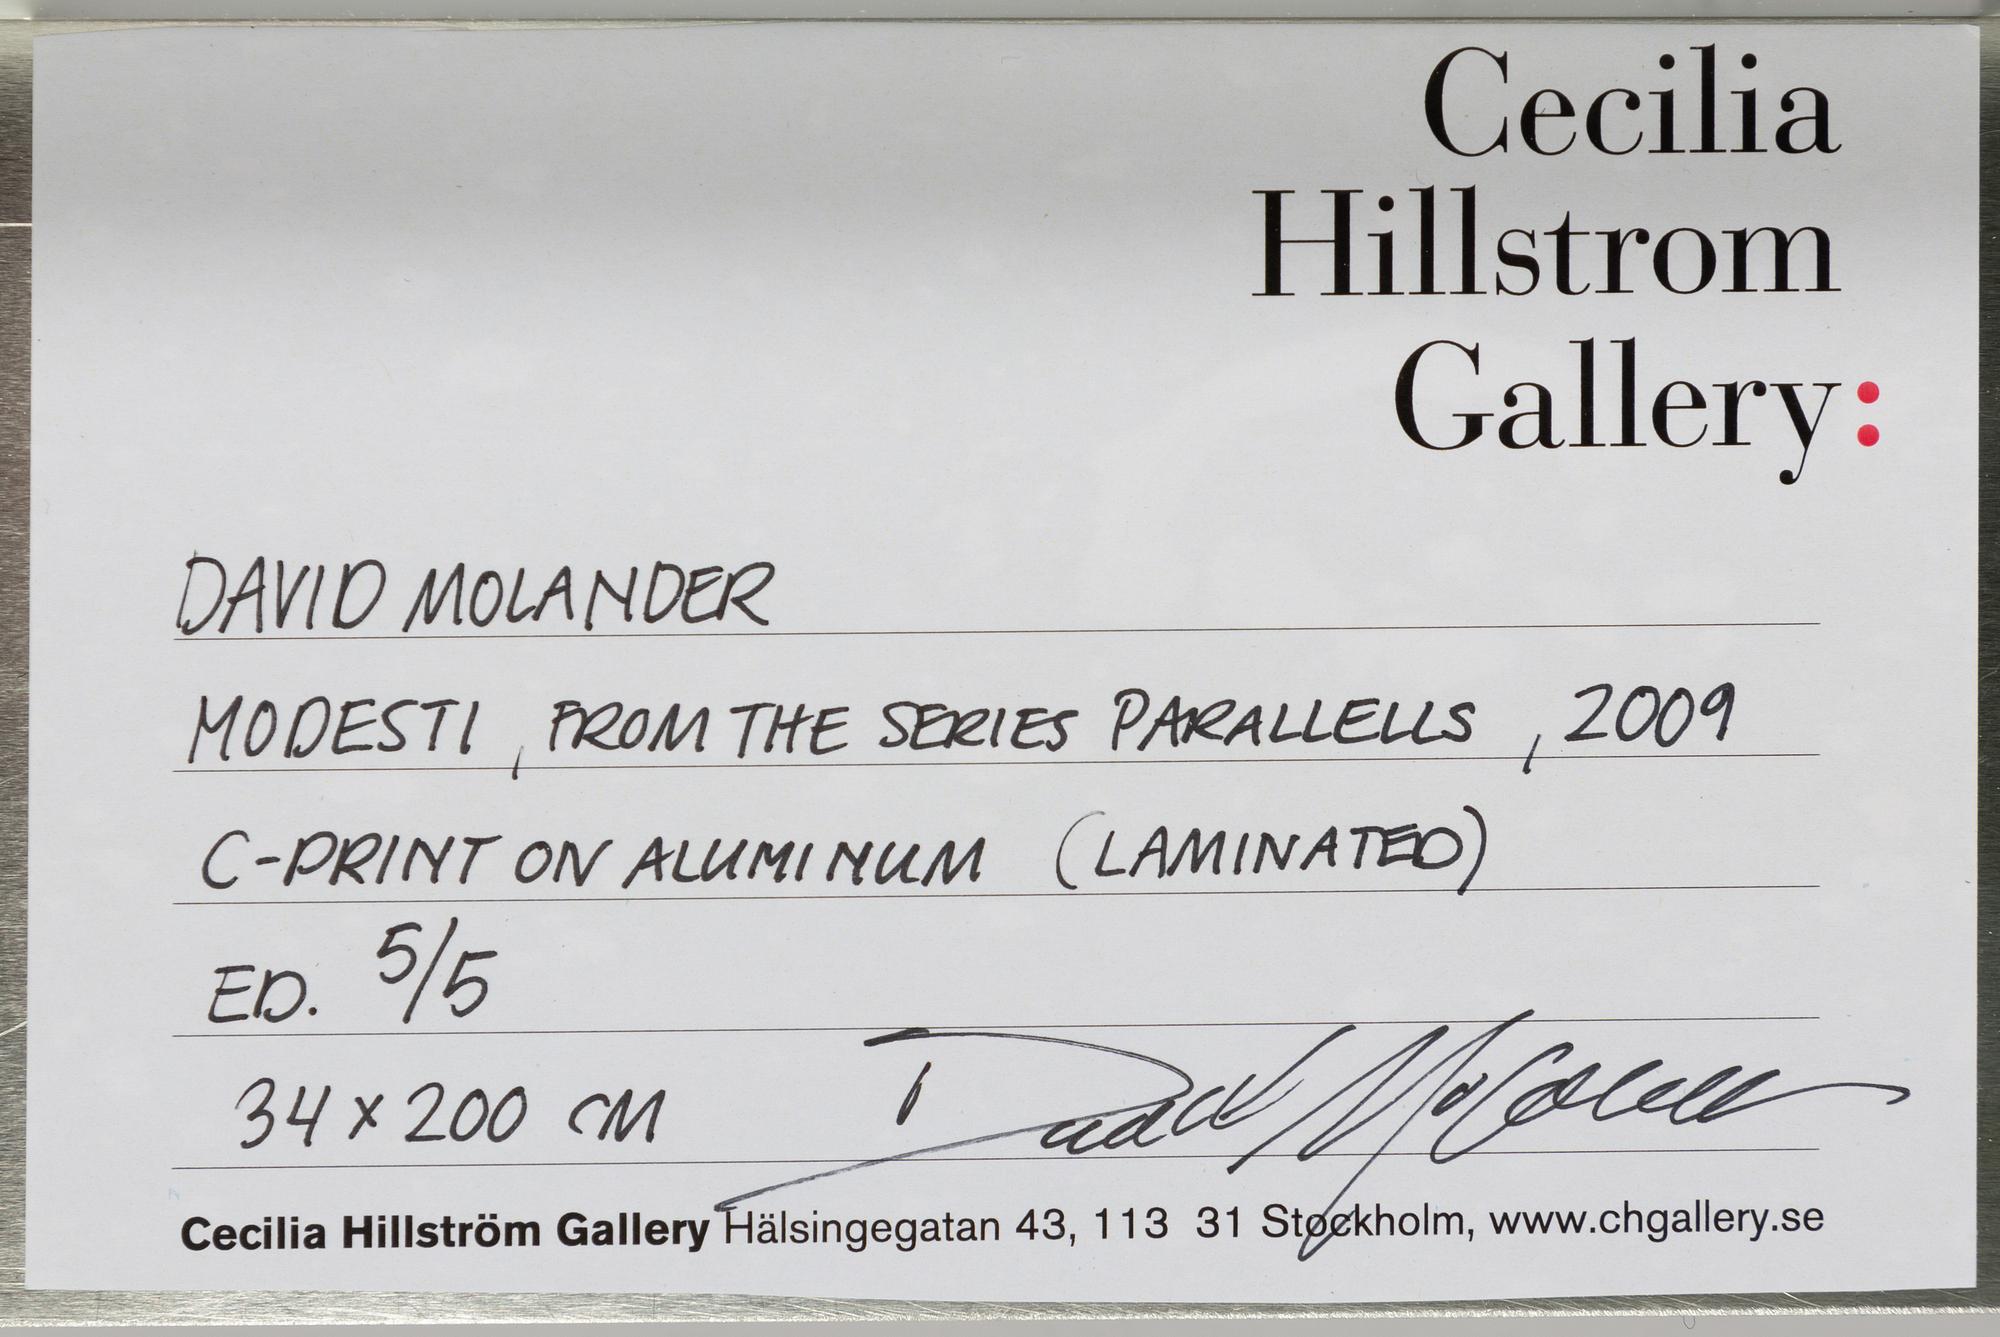 Cecilia
Hillstrom
Gallery:
DAVID MOLANDER
MODESTI, FROM THE SERIES PARALLELLS, 2009
C-PRINT ON ALUMINUM (LAMINATED)
ED. 5/5
34 x 200 CM
David Molander
Cecilia Hillström Gallery Hälsingegatan 43, 113 31 Stockholm, www.chgallery.se